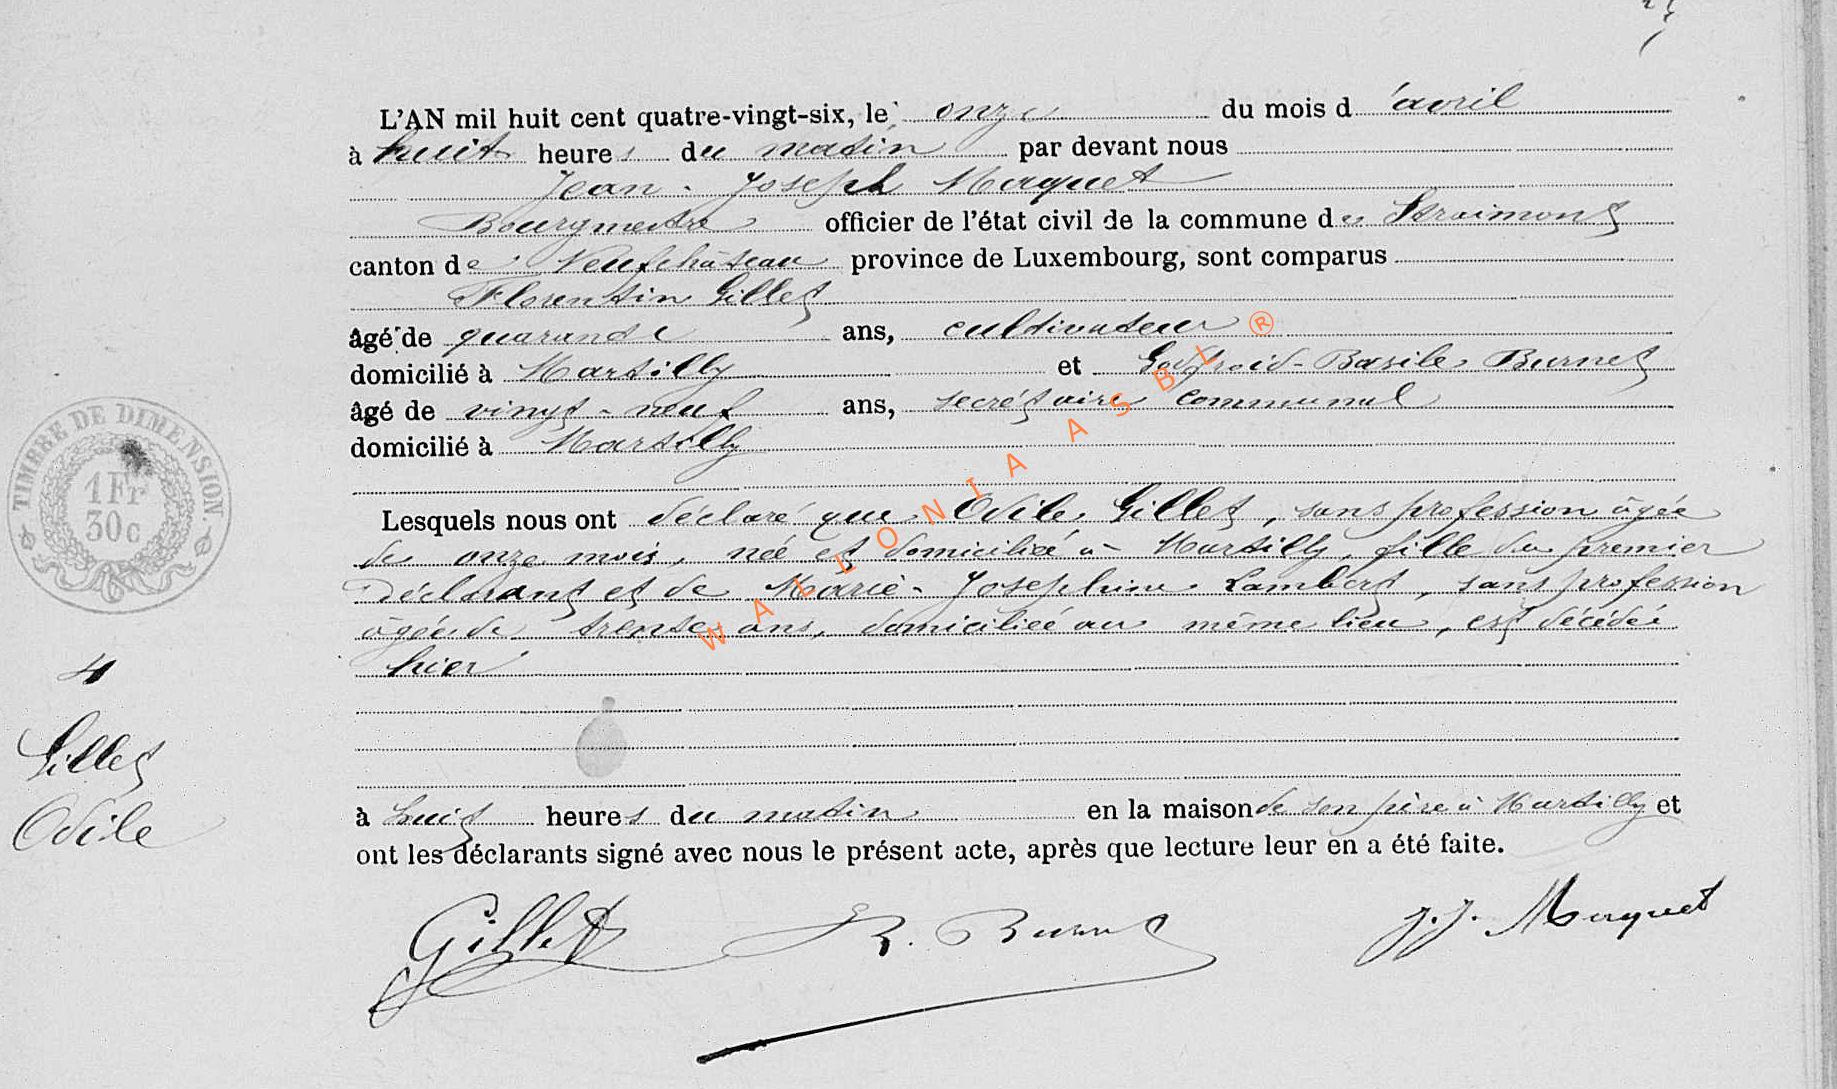 L'AN mil huit cent quatre-vingt-six, le onze du mois d'avril
à huit heures du matin par devant nous
Jean-Joseph Maquet
Bourgmestre officier de l'état civil de la commune de Straimont
canton de Neufchâteau province de Luxembourg, sont comparus
Florentin Gillet
âgé de quarante ans, cultivateur
domicilié à Martilly et Godfroid-Basile Burnet
âgé de vingt-neuf ans, secrétaire communal
domicilié à Martilly
Lesquels nous ont déclaré que Odile Gillet, sans profession âgée
de onze mois, née et domiciliée à Martilly, fille du premier
Déclarant et de Marie-Josephine Lambert, sans profession
âgée de trente ans, domiciliée au même lieu, est décédée
hier
à huit heures du matin en la maison de son père à Martilly et
ont les déclarants signé avec nous le présent acte, après que lecture leur en a été faite.
Gillet B. Burnet J.J. Maquet
TIMBRE DE DIMENSION.
1 Fr
30c
4
Gillet
Odile
WALLONIA ASBL ®